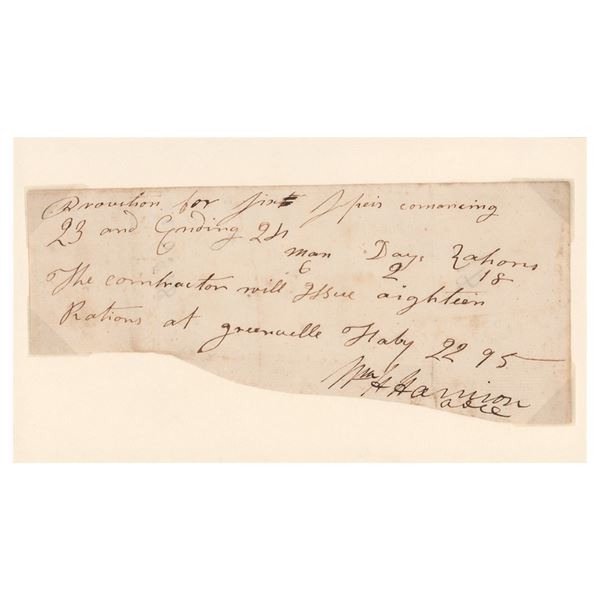 Provition for Six Speis comancing
23 and Ending 24
man Days Rations
6 2 18
The contractor will Issue aighteen
Rations at greenvelle 22 95
Wm H Harrison
adce